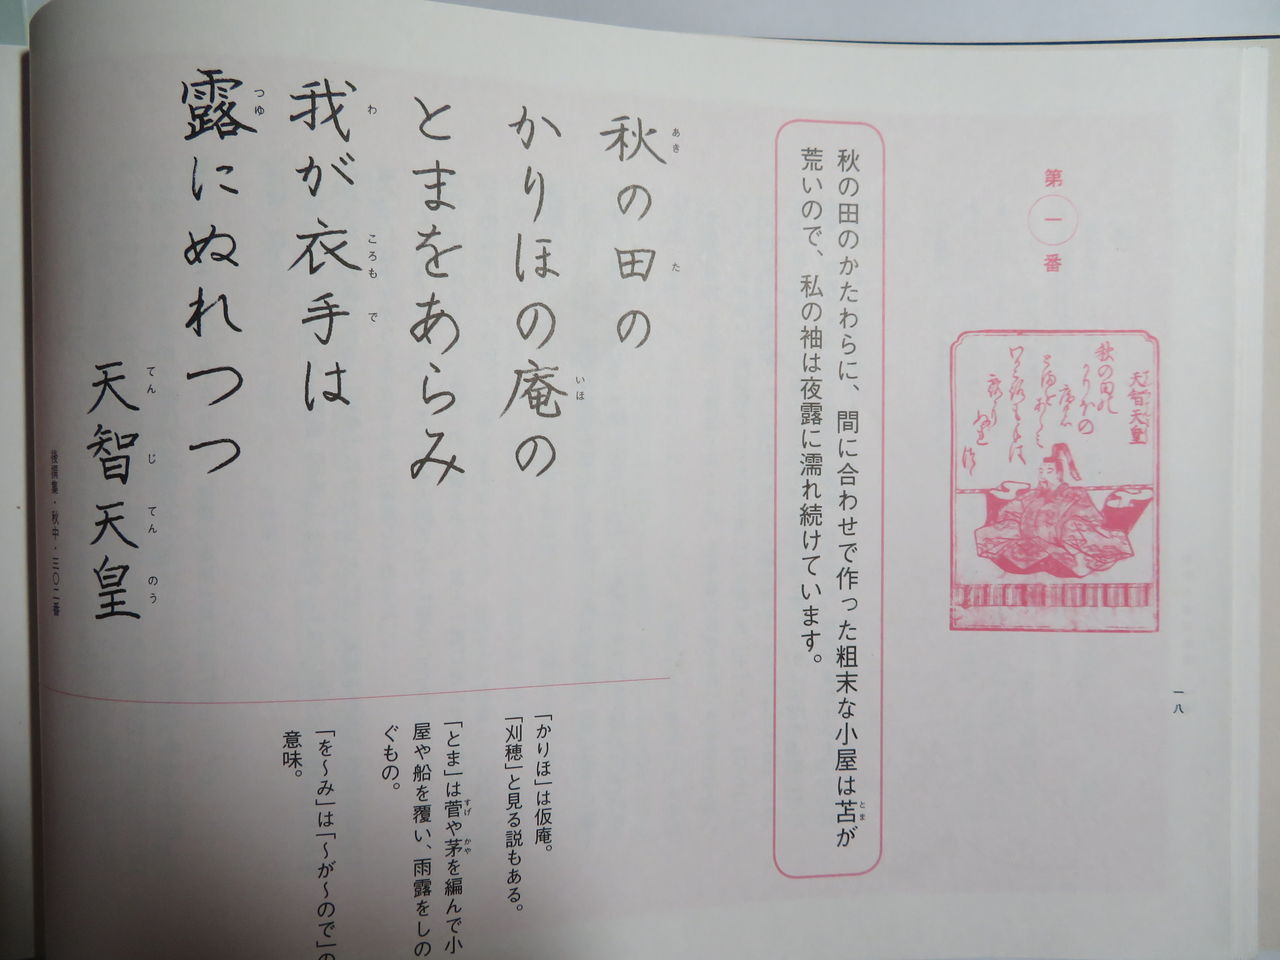 第一番
天智天皇
秋の田の
秋の田のかたわらに、間に合わせで作った粗末な小屋は苫が
とま
荒いので、私の袖は夜露に濡れ続けています。
秋の田の
あき
た
かりほの庵の
いほ
とまをあらみ
我が衣手は
わ
ころもで
露にぬれつつ
つゆ
天智天皇
てんじてんのう
後撰集・秋中・三〇二番
「かりほ」は仮庵。
「刈穂」と見る説もある。
「とま」は菅や茅を編んで小
すげ
かや
屋や船を覆い、雨露をしの
ぐもの。
「を〜み」は「〜が〜ので」の
意味。
一八